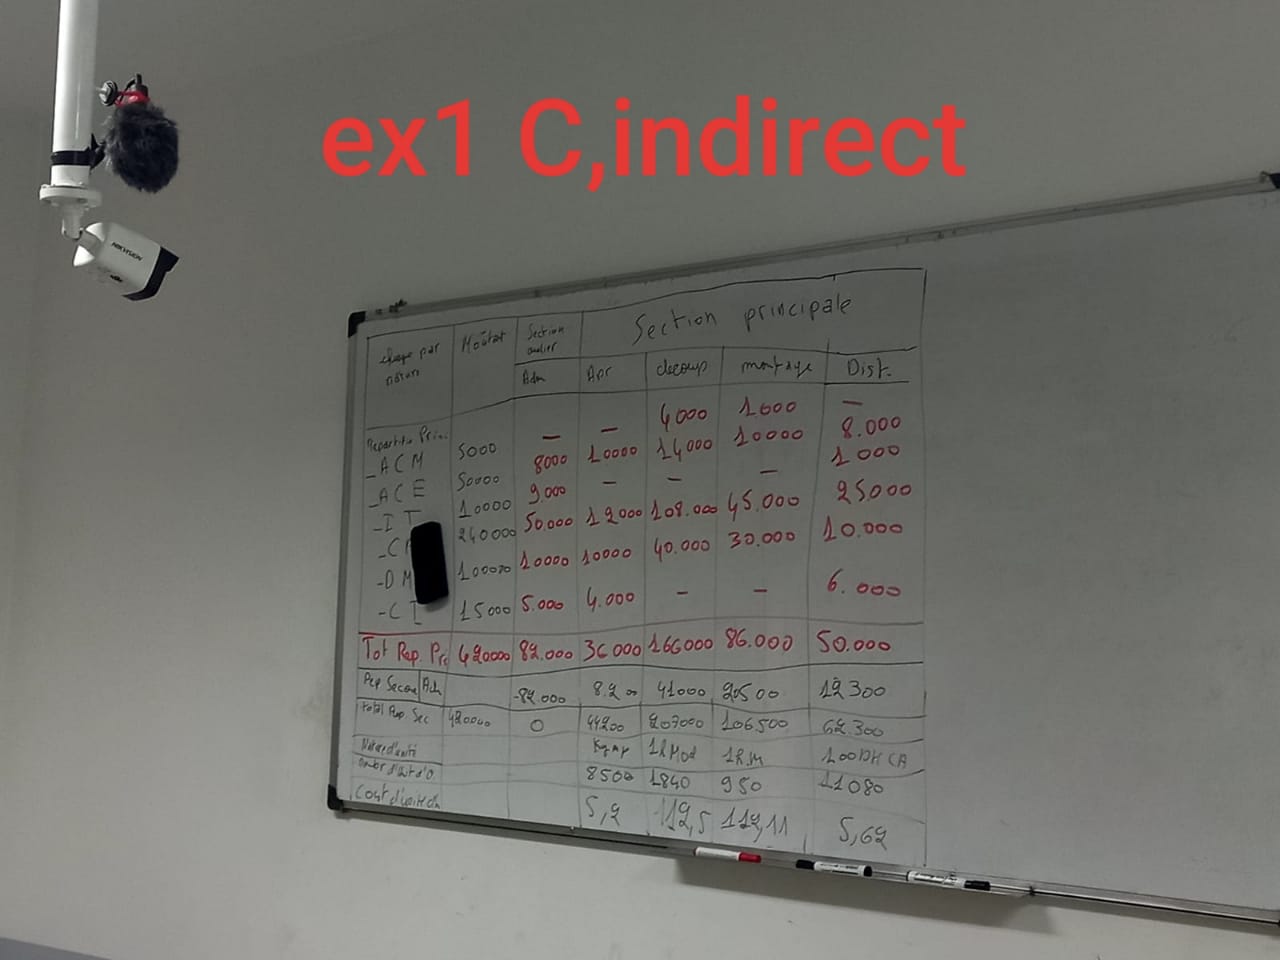 ex1 C,indirect
HIKVISION
Montat Section Section principale
nature Adm Apr decoup montage Dist.
Repartitio Prim.
-ACM 5000 — — 4000 1000 —
-ACE 50000 8000 10000 14000 10000 8.000
-IT 10000 9.000 — — — 1000
240000 50.000 12000 108.000 45.000 25000
-DM 100000 10000 10000 40.000 30.000 10.000
-CI 15000 5.000 4.000 — — 6.000
Tot Rep. Pr 420000 82.000 36000 166000 86.000 50.000
Rep Secon Adm -82.000 8.200 41000 20500 12300
total Rep Sec 420000 0 44200 207000 106.500 62.300
1h Mod 1h.M 100DH CA
8500 1840 950 11080
5,2 112,5 112,11 5,62